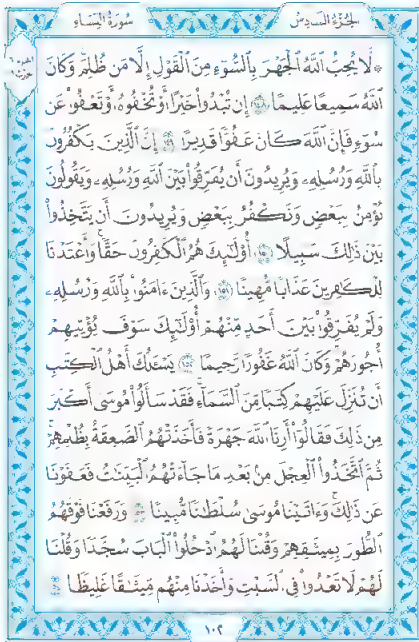 الجزء السادس سورة النساء
۞ لَّا يُحِبُّ ٱللَّهُ ٱلْجَهْرَ بِٱلسُّوٓءِ مِنَ ٱلْقَوْلِ إِلَّا مَن ظُلِمَ وَكَانَ
ٱللَّهُ سَمِيعًا عَلِيمًا ١٤٨ إِن تُبْدُوا۟ خَيْرًا أَوْ تُخْفُوهُ أَوْ تَعْفُوا۟ عَن
سُوٓءٍ فَإِنَّ ٱللَّهَ كَانَ عَفُوًّا قَدِيرًا ١٤٩ إِنَّ ٱلَّذِينَ يَكْفُرُونَ
بِٱللَّهِ وَرُسُلِهِۦ وَيُرِيدُونَ أَن يُفَرِّقُوا۟ بَيْنَ ٱللَّهِ وَرُسُلِهِۦ وَيَقُولُونَ
نُؤْمِنُ بِبَعْضٍ وَنَكْفُرُ بِبَعْضٍ وَيُرِيدُونَ أَن يَتَّخِذُوا۟
بَيْنَ ذَٰلِكَ سَبِيلًا ١٥٠ أُو۟لَٰٓئِكَ هُمُ ٱلْكَٰفِرُونَ حَقًّا وَأَعْتَدْنَا
لِلْكَٰفِرِينَ عَذَابًا مُّهِينًا ١٥١ وَٱلَّذِينَ ءَامَنُوا۟ بِٱللَّهِ وَرُسُلِهِۦ
وَلَمْ يُفَرِّقُوا۟ بَيْنَ أَحَدٍ مِّنْهُمْ أُو۟لَٰٓئِكَ سَوْفَ يُؤْتِيهِمْ
أُجُورَهُمْ وَكَانَ ٱللَّهُ غَفُورًا رَّحِيمًا ١٥٢ يَسْـَٔلُكَ أَهْلُ ٱلْكِتَٰبِ
أَن تُنَزِّلَ عَلَيْهِمْ كِتَٰبًا مِّنَ ٱلسَّمَآءِ فَقَدْ سَأَلُوا۟ مُوسَىٰٓ أَكْبَرَ
مِن ذَٰلِكَ فَقَالُوٓا۟ أَرِنَا ٱللَّهَ جَهْرَةً فَأَخَذَتْهُمُ ٱلصَّٰعِقَةُ بِظُلْمِهِمْ
ثُمَّ ٱتَّخَذُوا۟ ٱلْعِجْلَ مِنۢ بَعْدِ مَا جَآءَتْهُمُ ٱلْبَيِّنَٰتُ فَعَفَوْنَا
عَن ذَٰلِكَ وَءَاتَيْنَا مُوسَىٰ سُلْطَٰنًا مُّبِينًا ١٥٣ وَرَفَعْنَا فَوْقَهُمُ
ٱلطُّورَ بِمِيثَٰقِهِمْ وَقُلْنَا لَهُمُ ٱدْخُلُوا۟ ٱلْبَابَ سُجَّدًا وَقُلْنَا
لَهُمْ لَا تَعْدُوا۟ فِى ٱلسَّبْتِ وَأَخَذْنَا مِنْهُم مِّيثَٰقًا غَلِيظًا ١٥٤
١٠٢